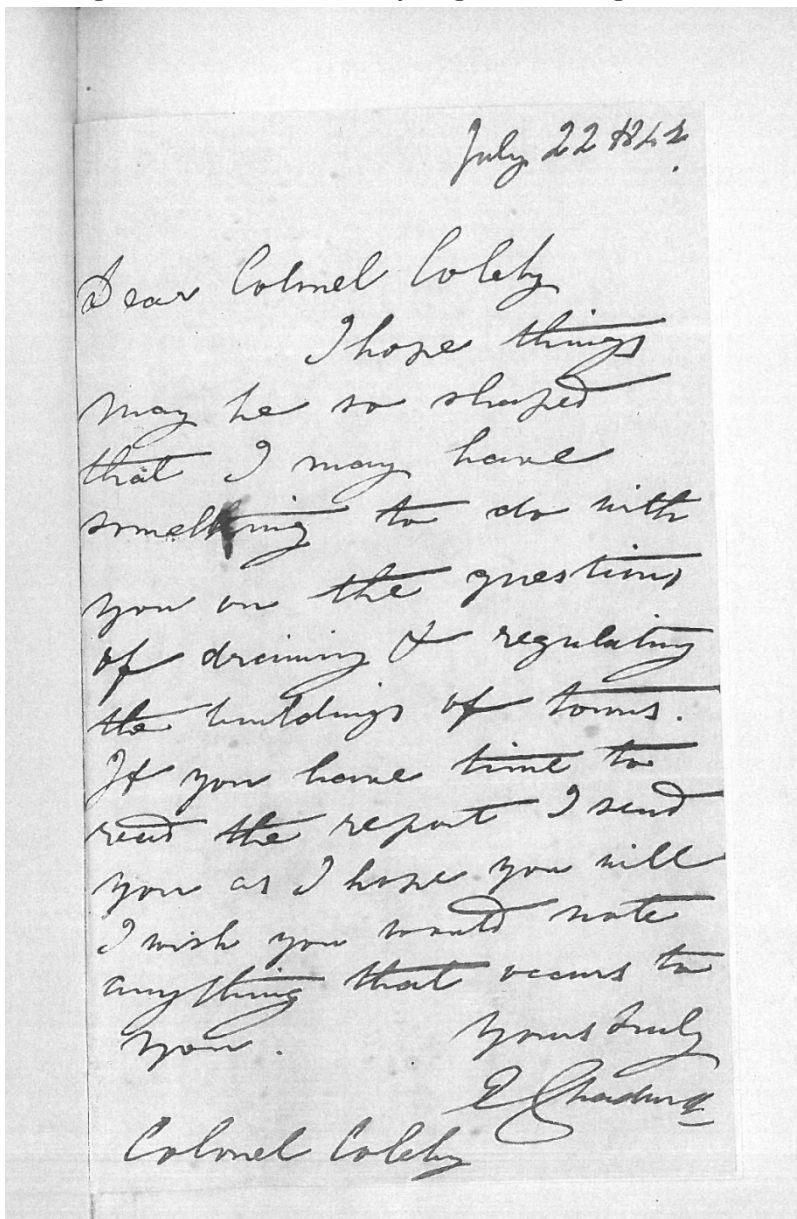 July 22 1842
Dear Colonel Coleby
I hope things
may be so shaped
that I may have
something to do with
you on the questions
of draining & regulating
the buildings of towns.
If you have time to
read the report I send
you as I hope you will
I wish you would note
anything that occurs to
you.
Yours truly
E Chadwick
Colonel Coleby